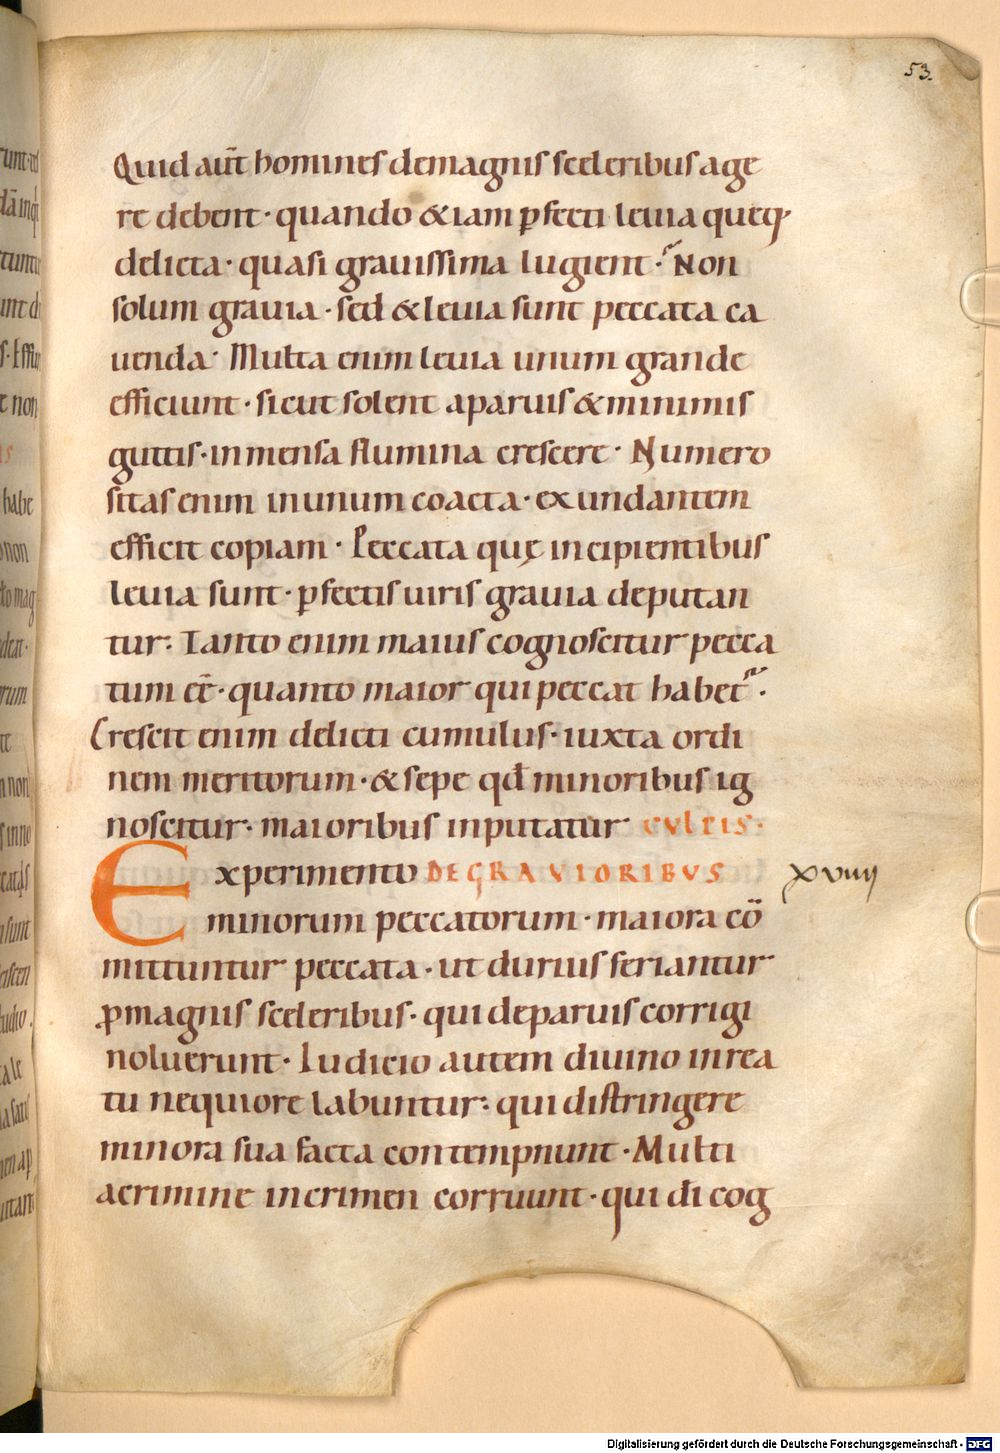 53.
Quid aut̄ homines demagnis sceleribus age
re debent· quando & iam ꝑfecti leuia queq;
delicta· quasi grauissima lugient· Non
solum grauia· sed & leuia sunt peccata ca
uenda· Multa enim leuia unum grande
efficiunt· sicut solent aparuis & minimis
guttis· inmensa flumina crescere· Numero
sitas enim inunum coacta· exundantem
efficit copiam· Peccata quę incipientibus
leuia sunt· ꝑfectis uiris grauia deputan
tur· Tanto enim maius cognoscitur pecca
tum eē· quanto maior qui peccat habet̃·
Crescit enim delicti cumulus· iuxta ordi
nem meritorum· & sepe qđ minoribus ig
noscitur· maioribus inputatur CULPIS·
Experimento DE GRAVIORIBUS
XVIIII
minorum peccatorum· maiora cō
mittuntur peccata· ut durius feriantur
ꝓ magnis sceleribus· qui deparuis corrigi
noluerunt· Iudicio autem diuino inrea
tu nequiore labuntur· qui distringere
minora sua facta contempnunt· Multi
acrimine incrimen corruunt· qui dī cog
Digitalisierung gefördert durch die Deutsche Forschungsgemeinschaft - DFG